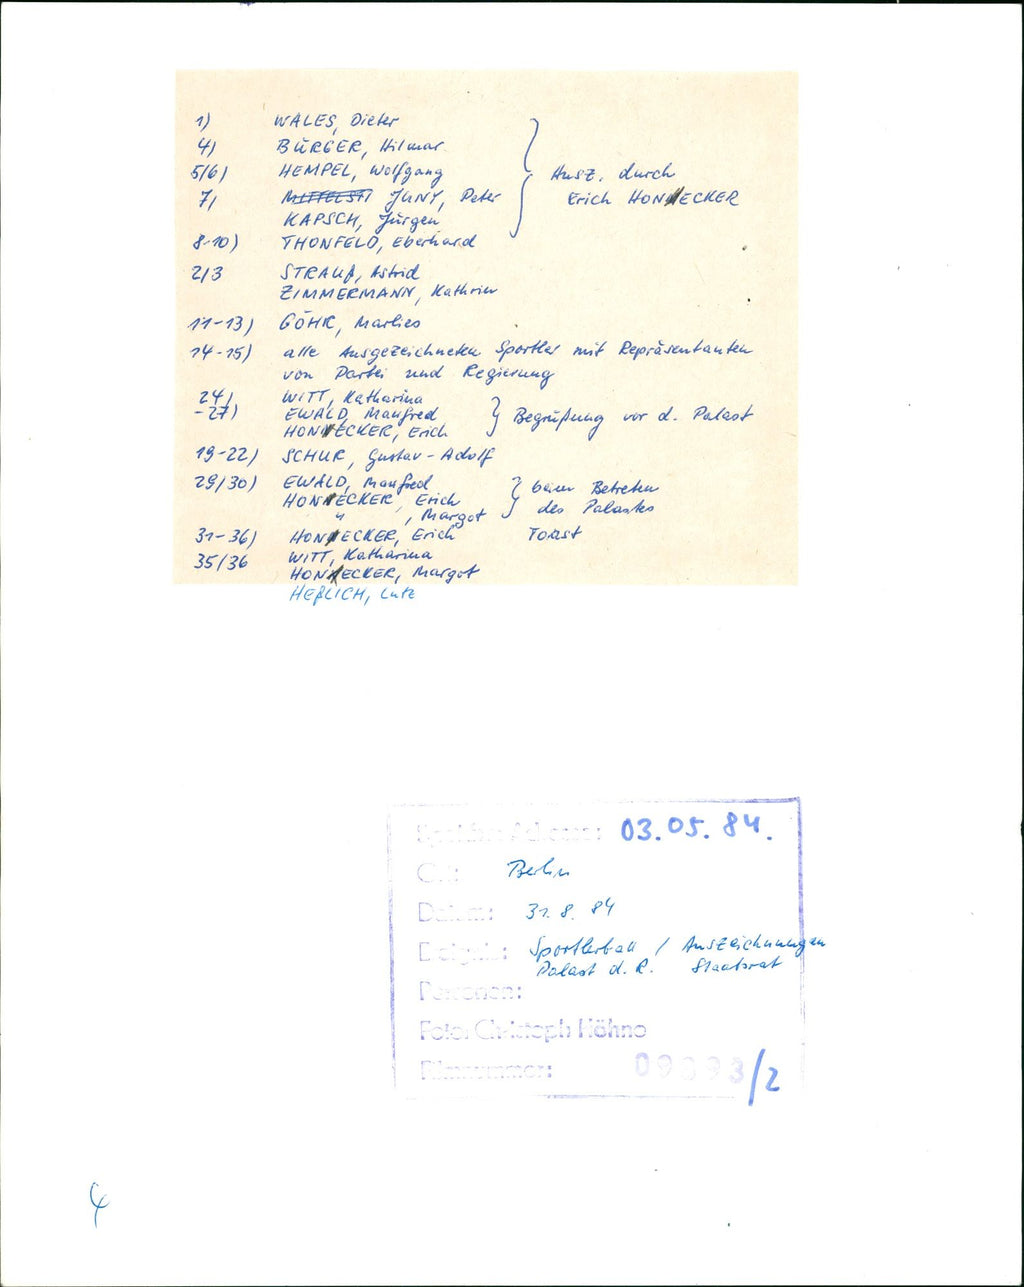 1) WALES, Dieter
4) BÜRGER, Hilmar
5/6) HEMPEL, Wolfgang Ausz. durch
7) JUNY, Peter Erich HONECKER
KAPSCH, Jürgen
8-10) THONFELD, Eberhard
2/3 STRAUß, Astrid
ZIMMERMANN, Kathrin
11-13) GÖHR, Marlies
14-15) alle Ausgezeichneten Sportler mit Repräsentanten
von Partei und Regierung
24) WITT, Katharina
-27) EWALD, Manfred Begrüßung vor d. Palast
HONECKER, Erich
19-22) SCHUR, Gustav-Adolf
29/30) EWALD, Manfred beim Betreten
HONECKER, Erich des Palastes
" , Margot
31-36) HONECKER, Erich Toast
35/36 WITT, Katharina
HONECKER, Margot
HEßLICH, Lutz
03.05.84.
Ort: Berlin
Datum: 31.8.84
Sportlerball / Auszeichnungen
Palast d. R. Staatsrat
Personen:
Foto: Christoph Höhne
Filmnummer: /2
4